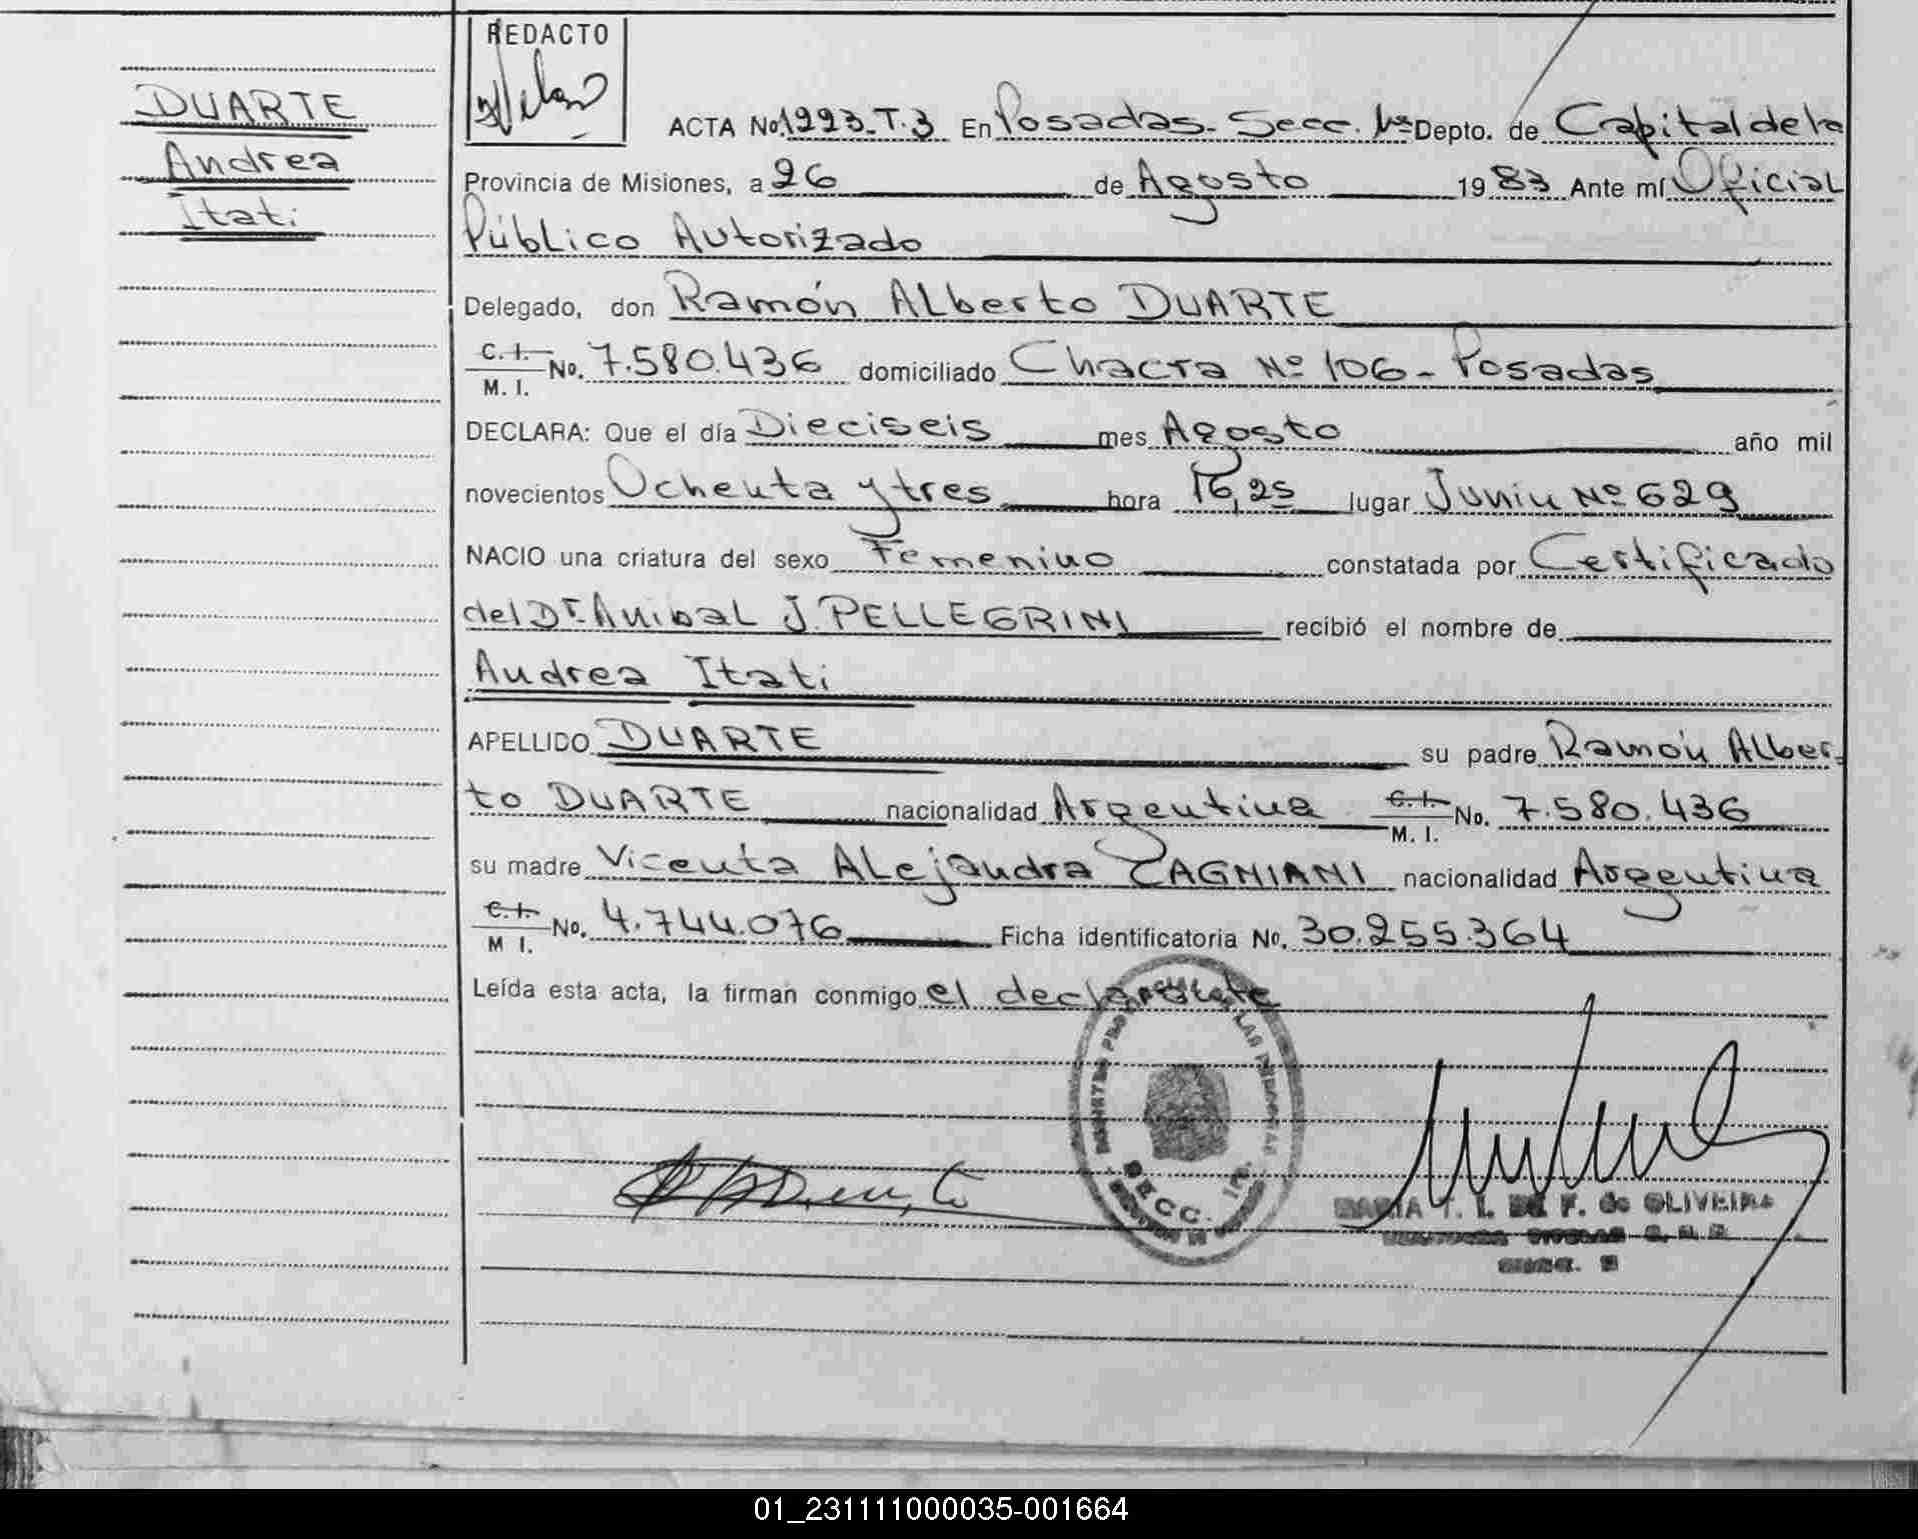 DUARTE
Andrea
Itati
REDACTO
ACTA No. 1223-T.3 En Posadas. Secc. 1ª Depto. de Capital de la
Provincia de Misiones, a 26 de Agosto 1983 Ante mí Oficial
Público Autorizado
Delegado, don Ramón Alberto DUARTE
C. I.
M. I. No. 7.580.436 domiciliado Chacra Nº 106 - Posadas
DECLARA: Que el día Dieciseis mes Agosto año mil
novecientos Ochenta y tres hora 16,25 lugar Junin Nº 629
NACIO una criatura del sexo Femenino constatada por Certificado
del Dr. Anibal J. PELLEGRINI recibió el nombre de
Andrea Itati
APELLIDO DUARTE su padre Ramón Alber-
to DUARTE nacionalidad Argentina C. I.
M. I. No. 7.580.436
su madre Vicenta Alejandra ZAGNIANI nacionalidad Argentina
C. I.
M I. No. 4.744.076 Ficha identificatoria No. 30.255.364
Leída esta acta, la firman conmigo el declarante
SECC. 1ra.
MARIA DE F. de OLIVEIRA
01_231111000035-001664